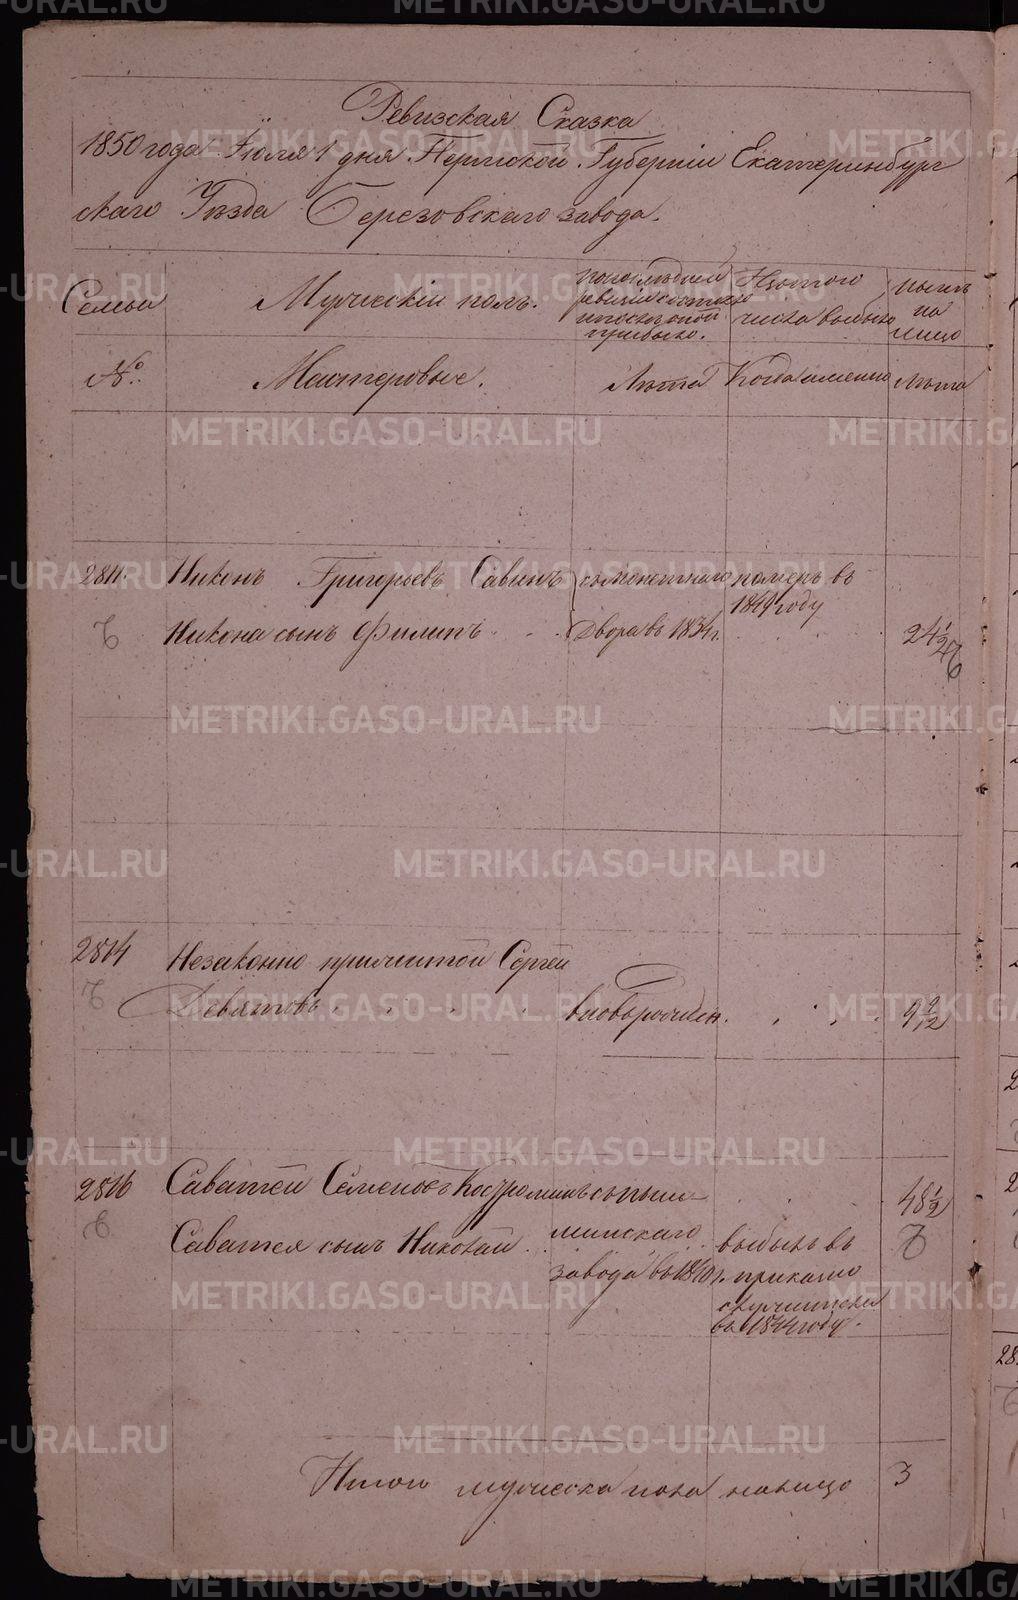 Ревизская Сказка
1850 года Іюля 1 дня Пермской Губерніи Екатеринбург
скаго Уѣзда Березовскаго завода.
Семьи
Мужескій полъ.
по последней
ревизіи состояло
и после оной
прибыло.
Изъ того
числа выбыло
нынѣ
на
лицо
№
Мастеровые.
Лѣта
Когда именно
Лѣта
2811.
Никонъ Григорьевъ Савинъ
померъ въ
1849 году
Никона сынъ Филипъ
Двора въ 1834 г.
24 1/2
2814
Незаконно прижитой Сергей
Девятовъ
вновь рожден.
9 9/12
2816
Саватей Семеновъ Костроминъ
48 1/2
Саватея сынъ Николай
минскаго
завода въ 1840 г.
выбылъ въ
въ 1844 году.
Итого мужеска пола на лицо
3
METRIKI.GASO-URAL.RU